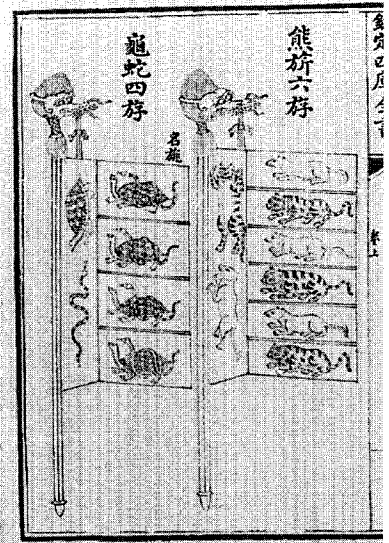 欽定四庫全書
卷上
熊旂六斿
龜蛇四斿
名旐